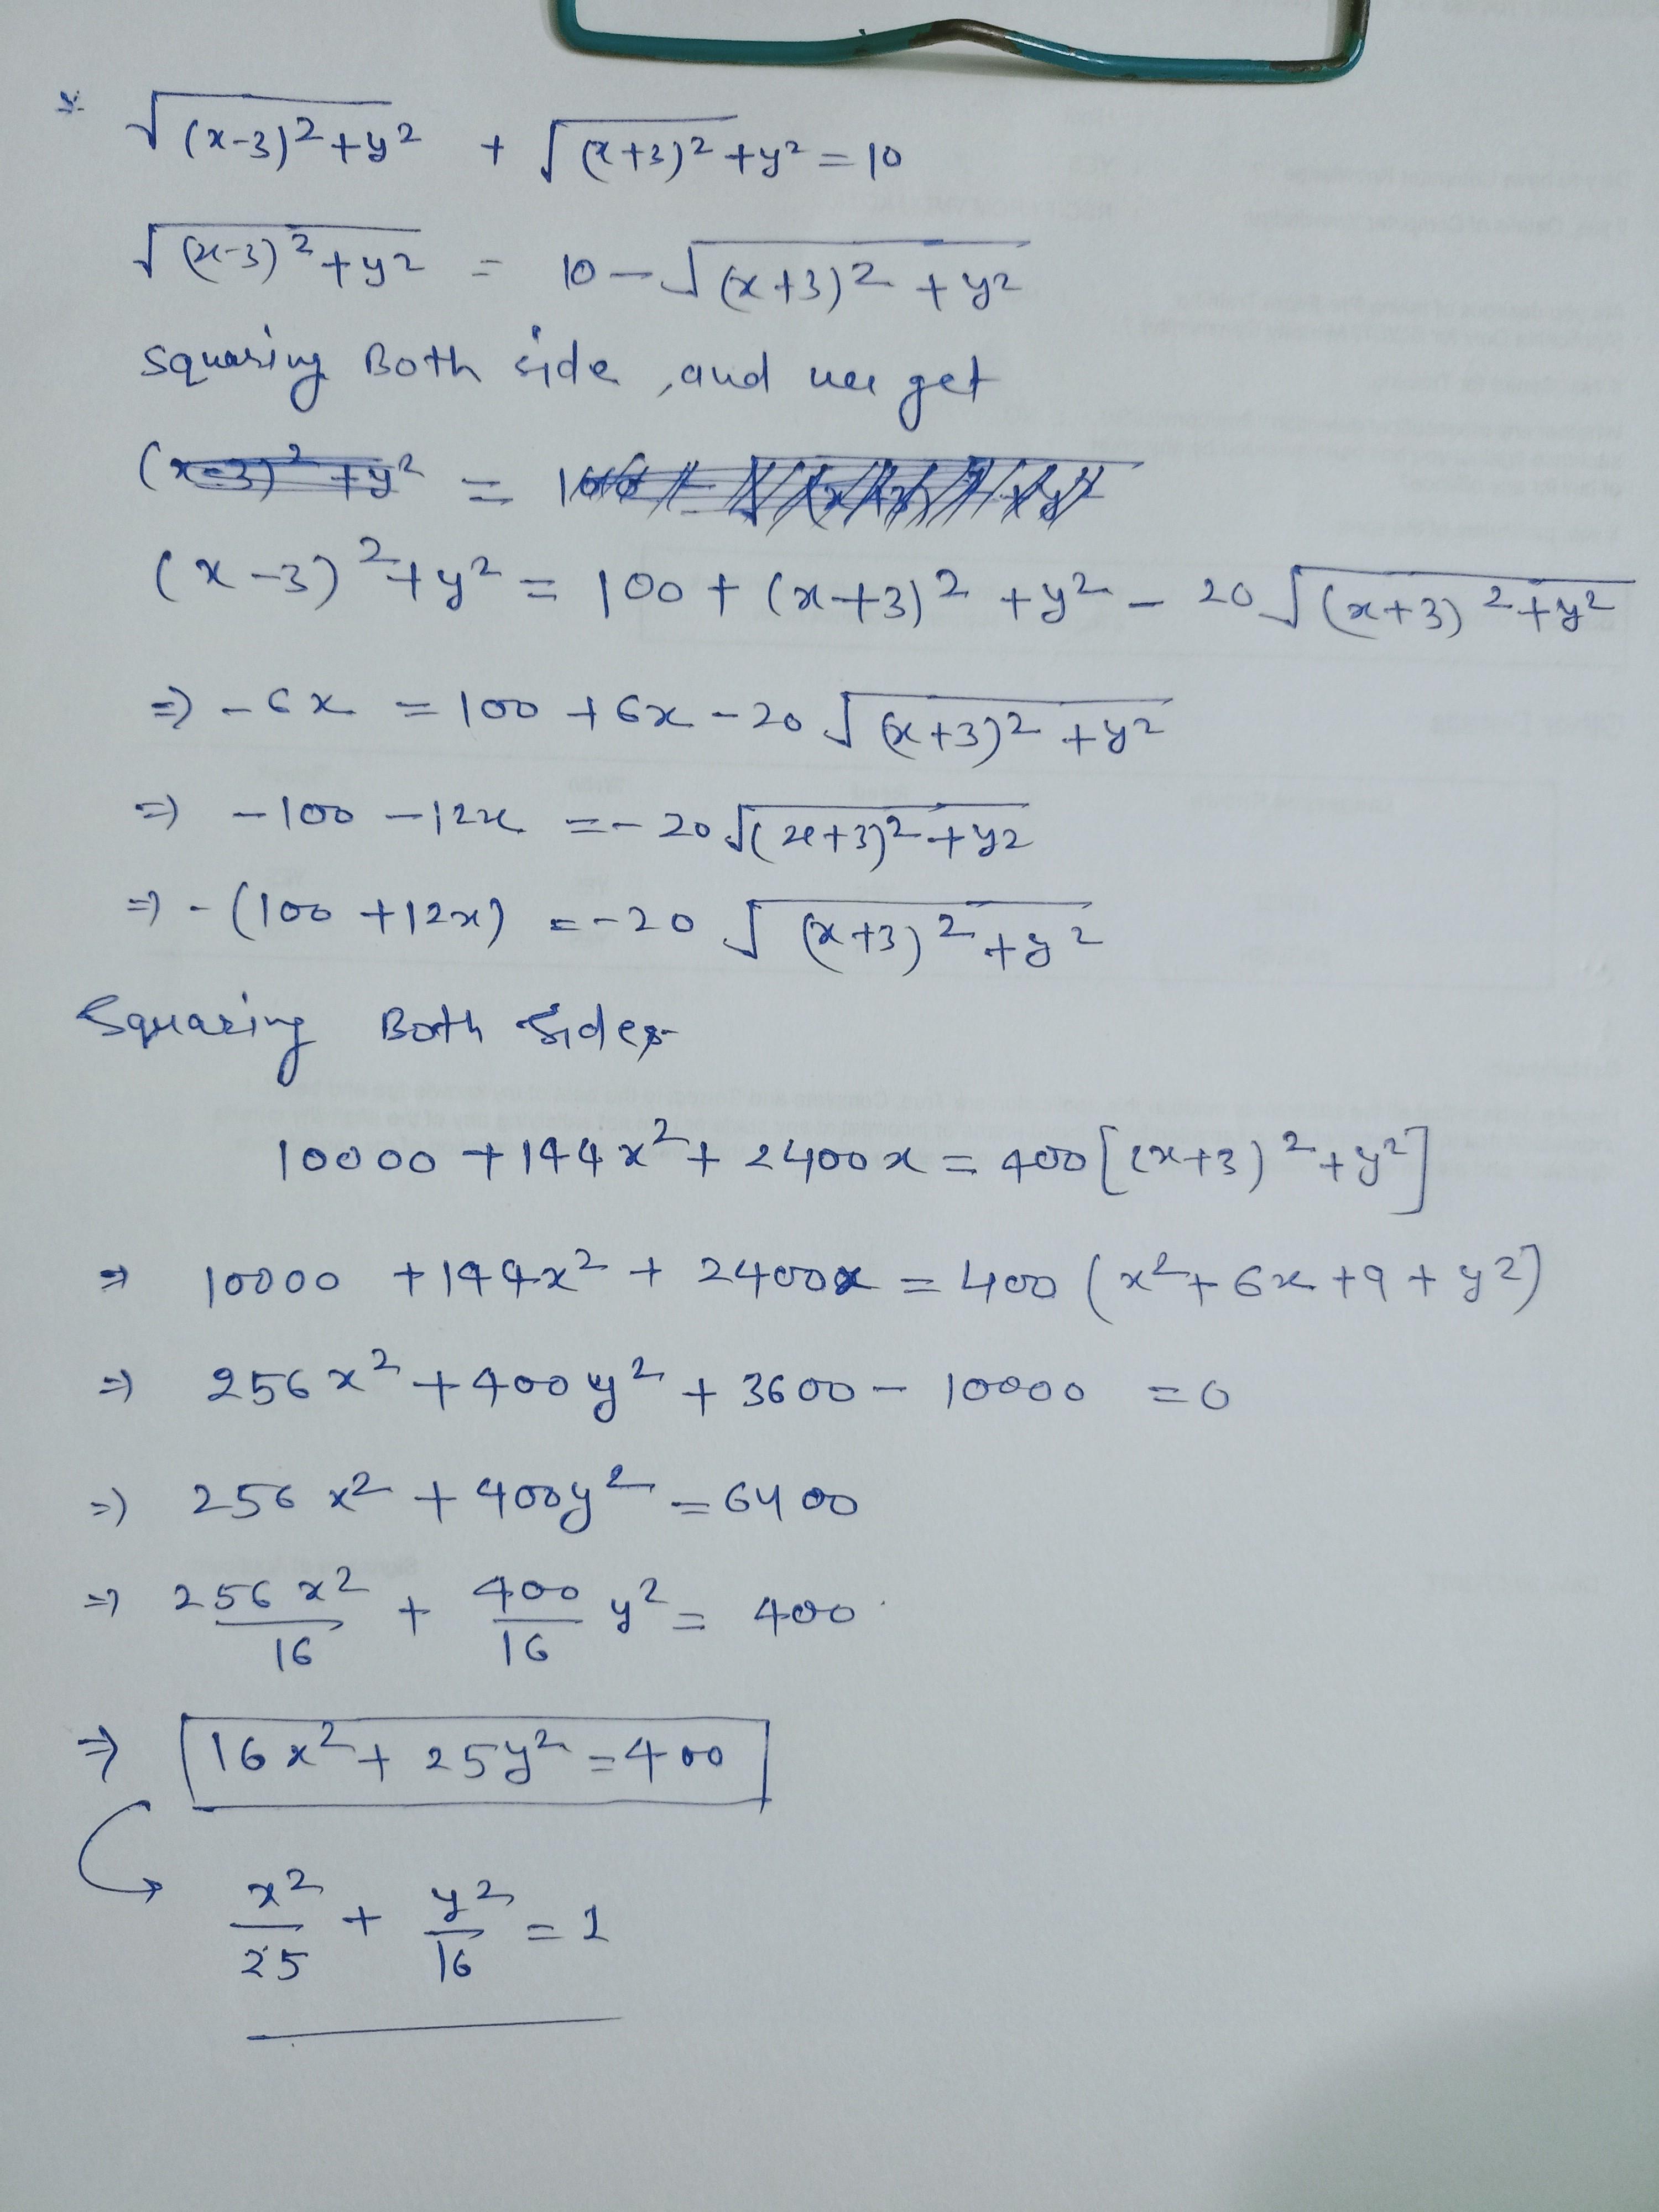 * √((x-3)²+y²) + √((x+3)²+y²) = 10
√((x-3)²+y²) = 10 - √((x+3)²+y²)
Squaring Both side, and we get
(x-3)²+y² = 100
(x-3)²+y² = 100 + (x+3)² + y² - 20√((x+3)²+y²)
⇒ -6x = 100 + 6x - 20√((x+3)²+y²)
⇒ -100 - 12x = -20√((x+3)²+y²)
⇒ -(100+12x) = -20√((x+3)²+y²)
Squaring Both Sides
10000 + 144x² + 2400x = 400[(x+3)²+y²]
⇒ 10000 + 144x² + 2400x = 400(x²+6x+9+y²)
⇒ 256x² + 400y² + 3600 - 10000 = 0
⇒ 256x² + 400y² = 6400
⇒ 256x²/16 + 400/16 y² = 400
⇒ 16x² + 25y² = 400
x²/25 + y²/16 = 1